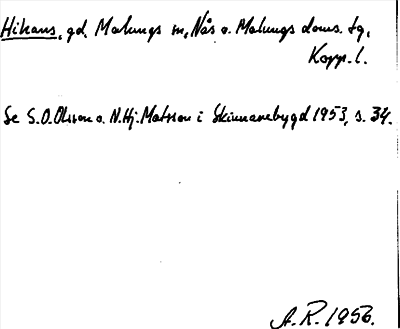 Hikans, gd, Malungs sn, Nås o. Malungs doms. tg,
Kopp. l.
Se S.O. Olsson o. N.Hj. Matsson i Skinnarebygd 1953, s. 34.
A.R. 1956.